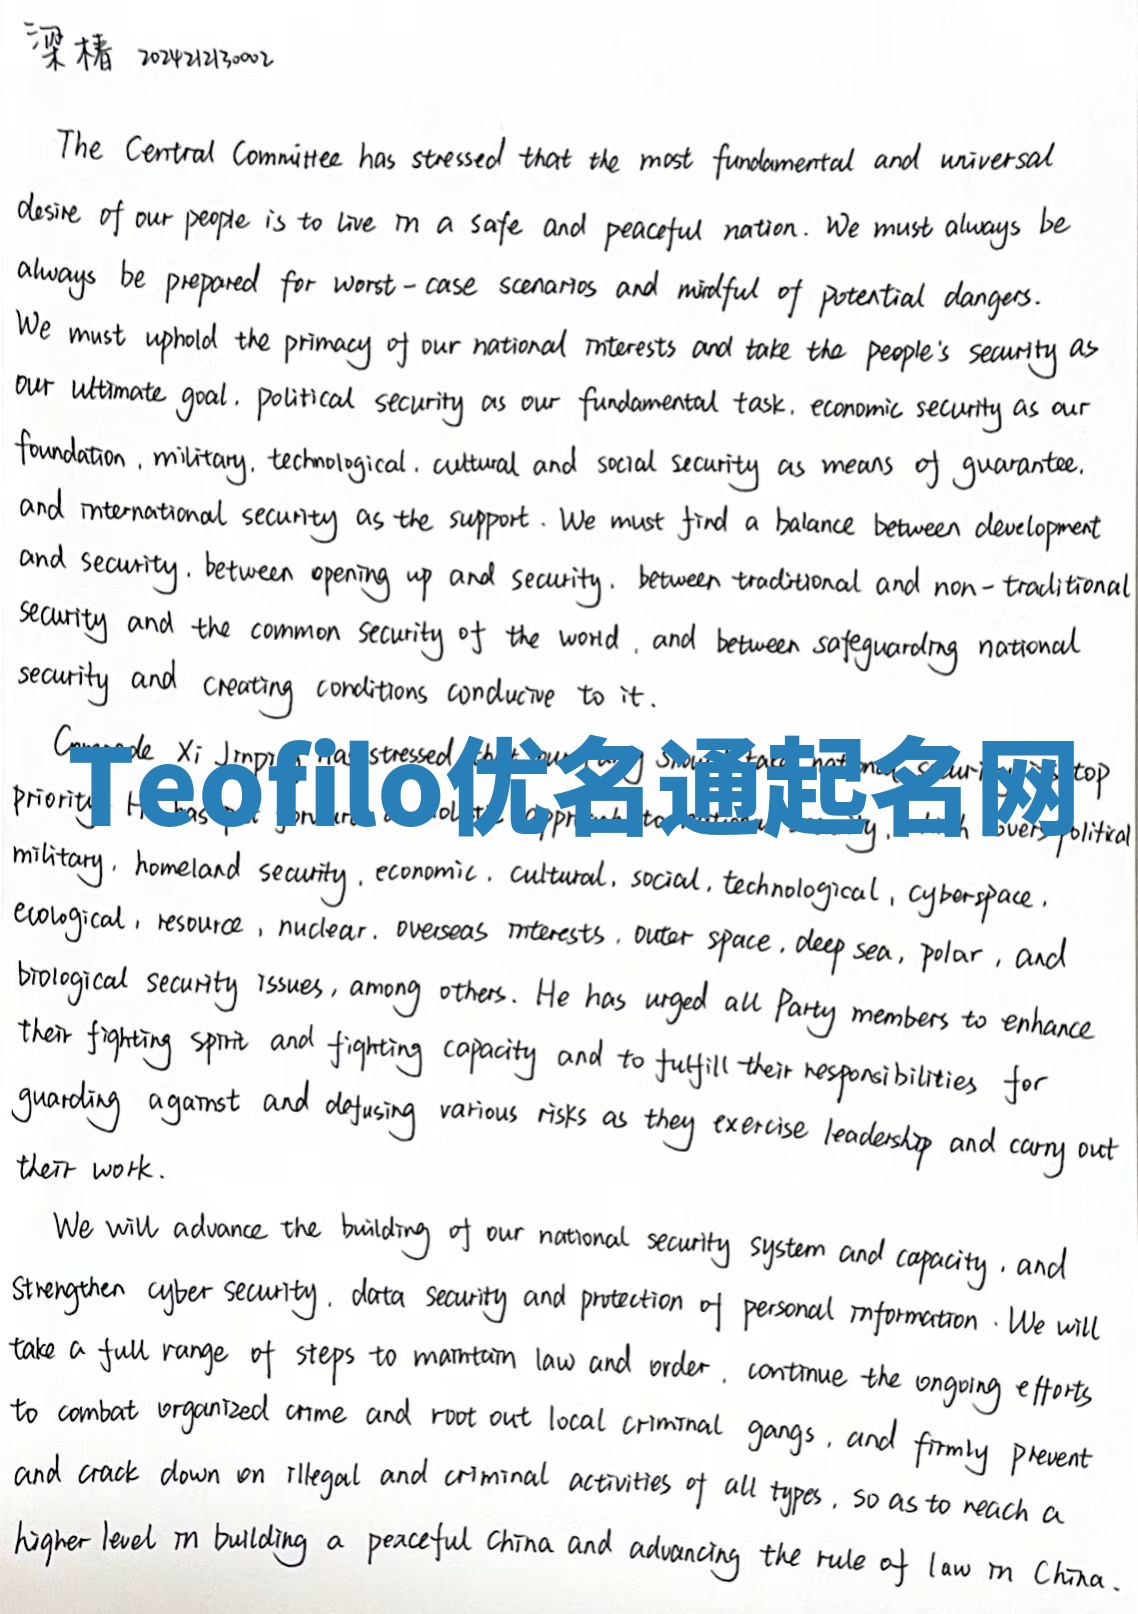 梁椿 2024212130002
The Central Committee has stressed that the most fundamental and universal
desire of our people is to live in a safe and peaceful nation. We must always be
always be prepared for worst-case scenarios and mindful of potential dangers.
We must uphold the primacy of our national interests and take the people's security as
our ultimate goal, political security as our fundamental task, economic security as our
foundation, military, technological, cultural and social security as means of guarantee,
and international security as the support. We must find a balance between development
and security, between opening up and security, between traditional and non-traditional
security and the common security of the world, and between safeguarding national
security and creating conditions conducive to it.
Xi Jinping has stressed that our should take national security top
Teofilo优名通起名网
priority. He has to political
military, homeland security, economic, cultural, social, technological, cyberspace,
ecological, resource, nuclear, overseas interests, outer space, deep sea, polar, and
biological security issues, among others. He has urged all Party members to enhance
their fighting spirit and fighting capacity and to fulfill their responsibilities for
guarding against and defusing various risks as they exercise leadership and carry out
their work.
We will advance the building of our national security system and capacity, and
strengthen cyber security, data security and protection of personal information. We will
take a full range of steps to maintain law and order, continue the ongoing efforts
to combat organized crime and root out local criminal gangs, and firmly prevent
and crack down on illegal and criminal activities of all types, so as to reach a
higher level in building a peaceful China and advancing the rule of law in China.